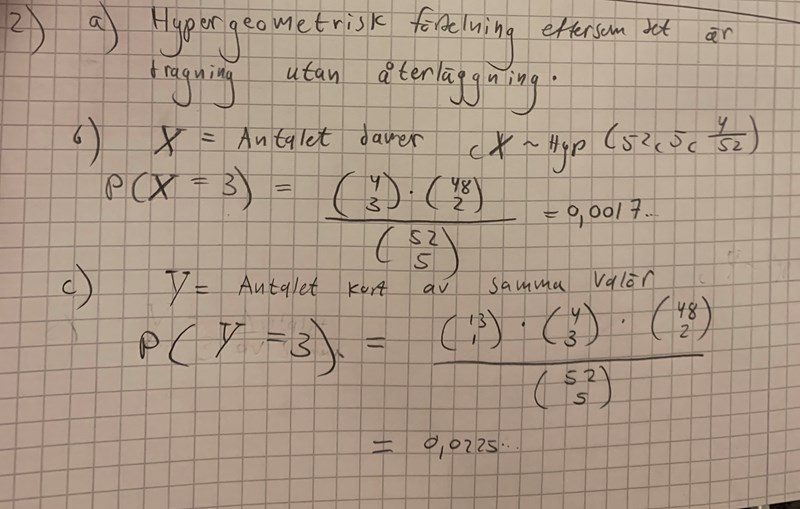 2) a) Hypergeometrisk fördelning eftersom det är
dragning utan återläggning.
b) X = Antalet damer , X ~ Hyp (52, 5, 4/52)
P(X = 3) = \frac{\binom{4}{3} \cdot \binom{48}{2}}{\binom{52}{5}} = 0,0017..
c) Y = Antalet kort av samma valör
P(Y = 3) = \frac{\binom{13}{1} \cdot \binom{4}{3} \cdot \binom{48}{2}}{\binom{52}{5}}
= 0,0225..